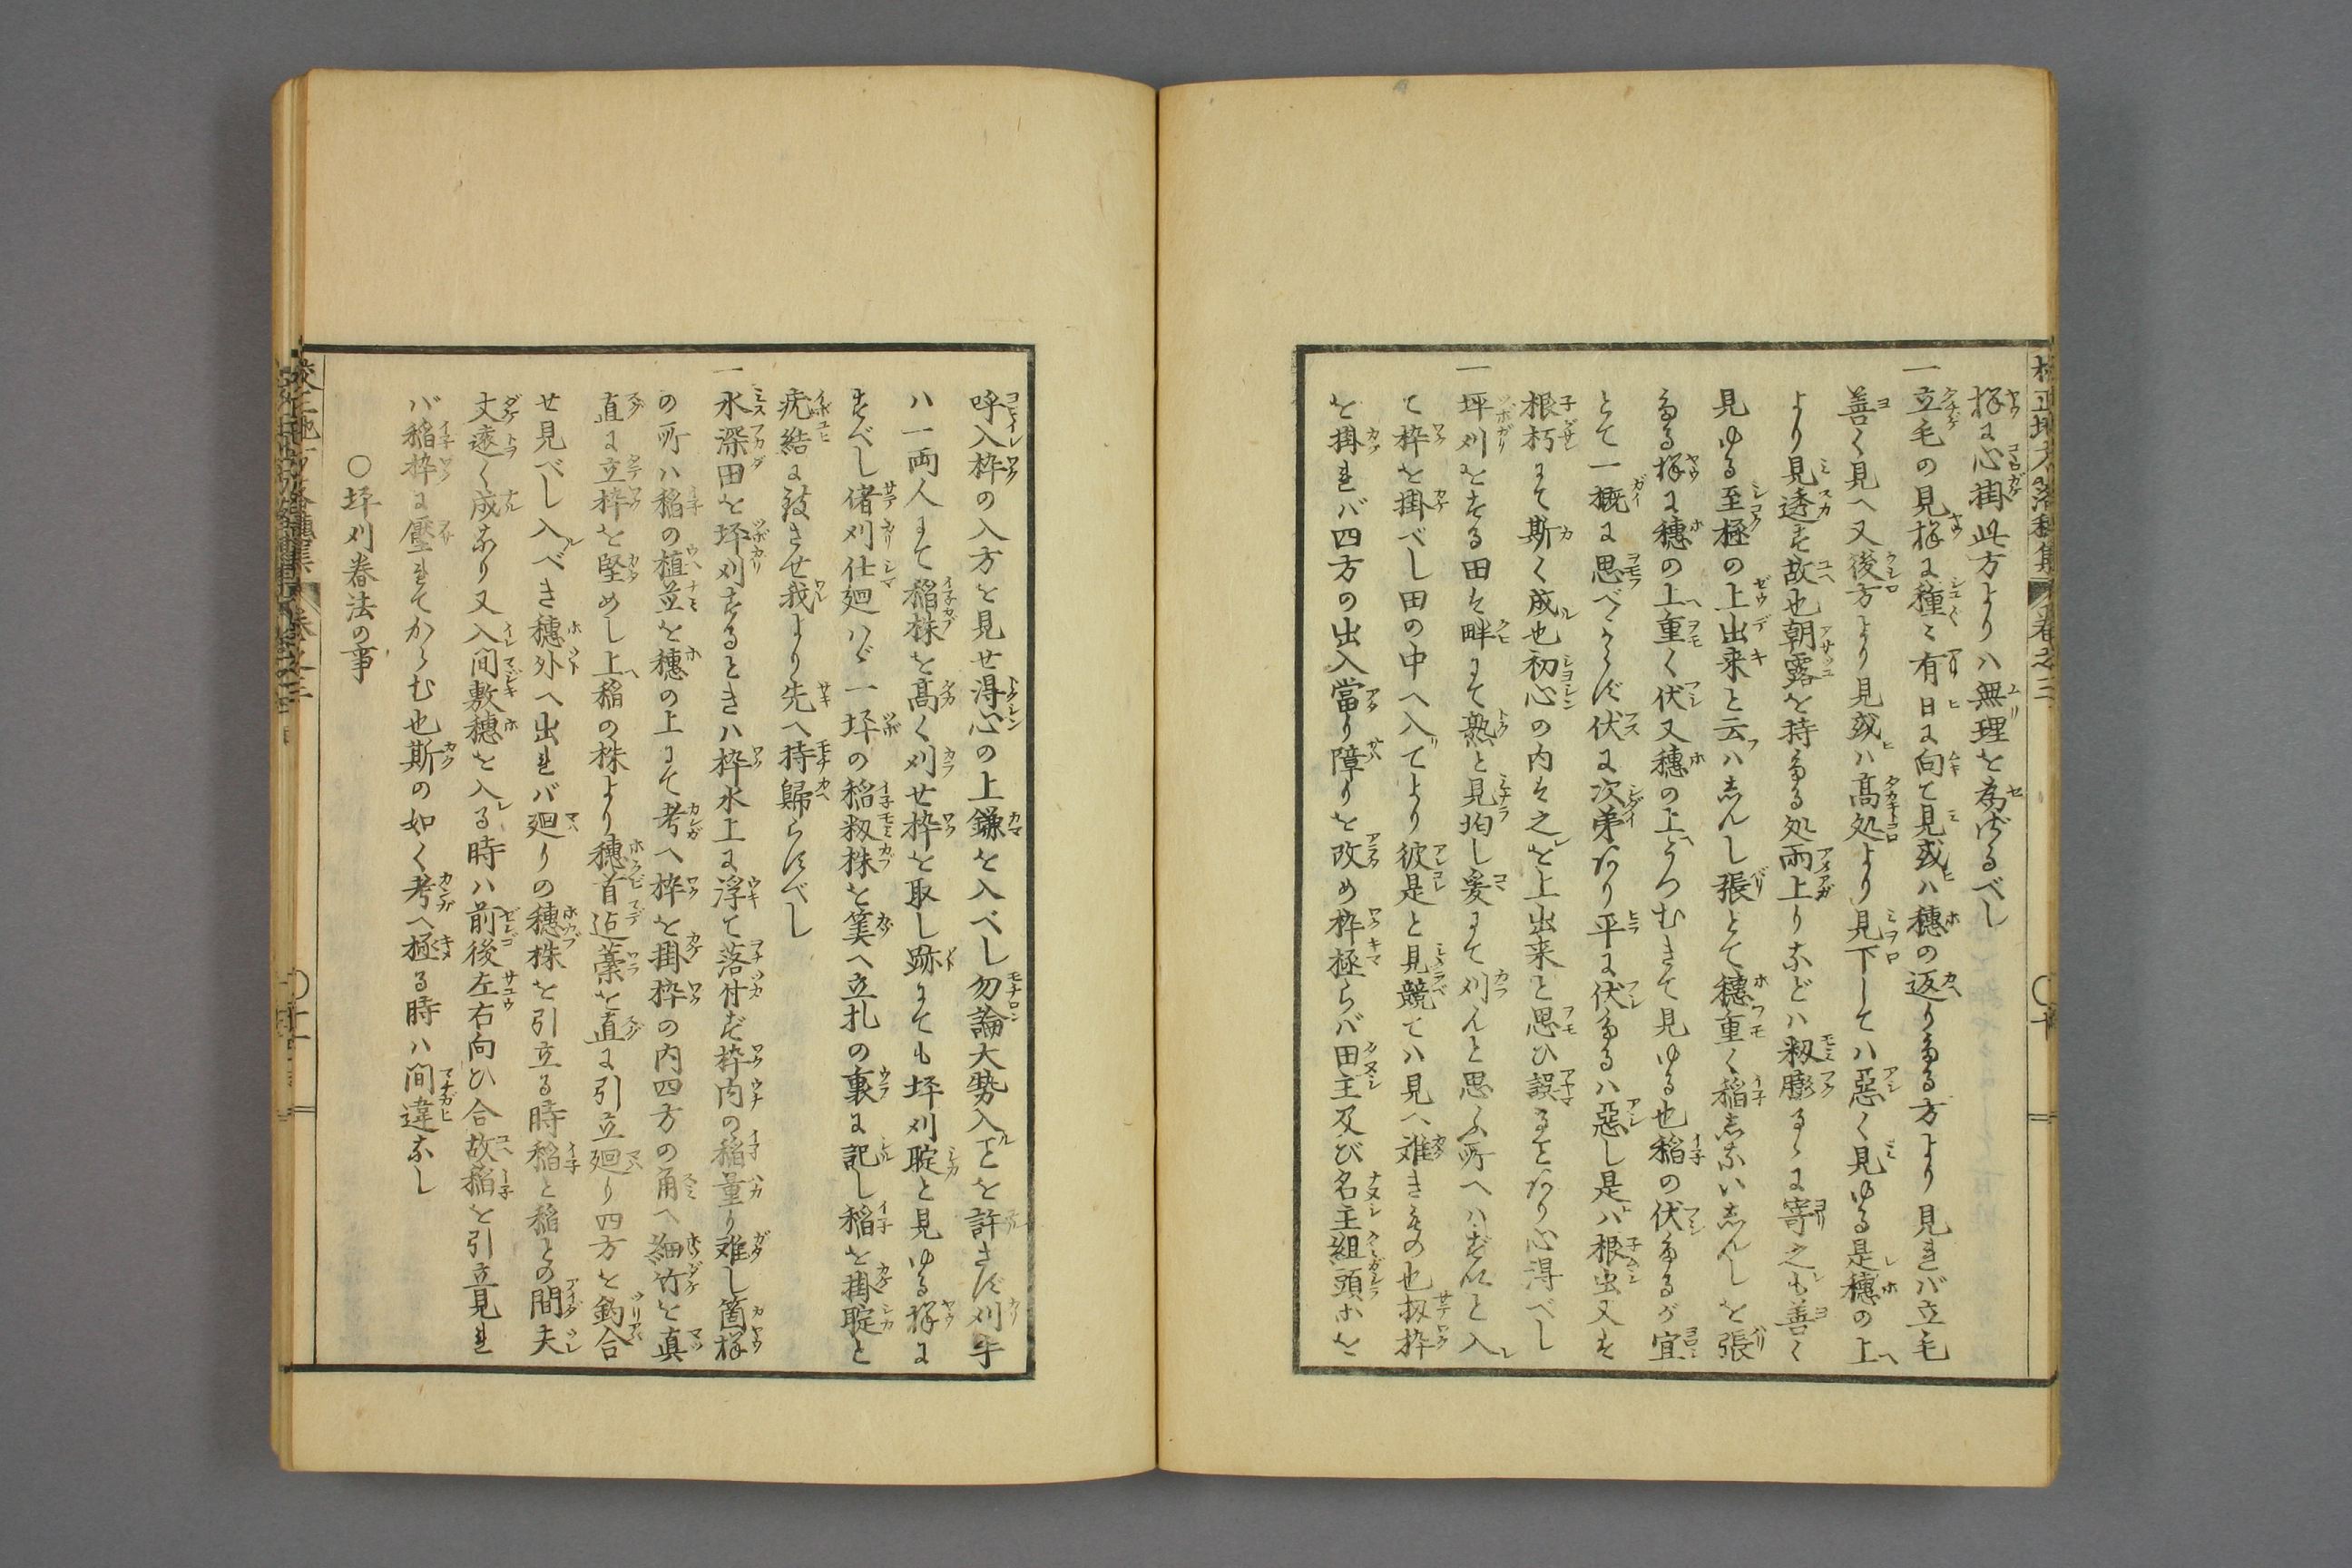 様に心掛此方よりハ無理を為ざるべし
一立毛の見様に種〻有日に向て見或ハ穂の返りたる方より見れバ立毛
善く見へ又後方より見或ハ高処より見下してハ悪く見ゆる是穂の上
より見透す故也朝露を持たる処雨上りなどハ籾膨るゝに寄之も善く
見ゆる至極の上出来と云ハしんし張とて穂重く稲しないしんしを張
たる様に穂の上重く伏又穂の上うつむきて見ゆる也稲の伏たるが宜
とて一概に思べからず伏に次第あり平に伏たるハ悪し是ハ根虫又は
根朽にて斯く成也初心の内は之を上出来と思ひ誤ることあり心得べし
一坪刈をする田は畔にて熟と見均し爰にて刈んと思ふ所へハずいと入
て枠を掛べし田の中へ入てより彼是と見競てハ見へ難きもの也扨枠
を掛れバ四方の出入當り障りを改め枠極らバ田主及び名主組頭等を
呼入枠の入方を見せ得心の上鎌を入べし勿論大勢入ことを許さず刈手
ハ一両人にて稲株を高く刈せ枠を取し跡にても坪刈聢と見ゆる様に
すべし偖刈仕廻ハゞ一坪の稲籾株を算へ立札の裏に記し稲を掛聢と
疣結に致させ我より先へ持歸らすべし
一水深田を坪刈するときハ枠水上に浮て落付ず枠内の稲量り難し箇様
の所ハ稲の植並を穂の上にて考へ枠を掛枠の内四方の角へ細竹を真
直に立枠を堅めし上稲の株より穂首迠藁を直に引立廻り四方を釣合
せ見べし入べき穂外へ出れバ廻りの穂株を引立る時稲と稲との間夫
丈遠く成なり又入間敷穂を入る時ハ前後左右向ひ合故稲を引立見れ
バ稲枠に壓れてかゝむ也斯の如く考へ極る時ハ間違なし
○坪刈舂法の事